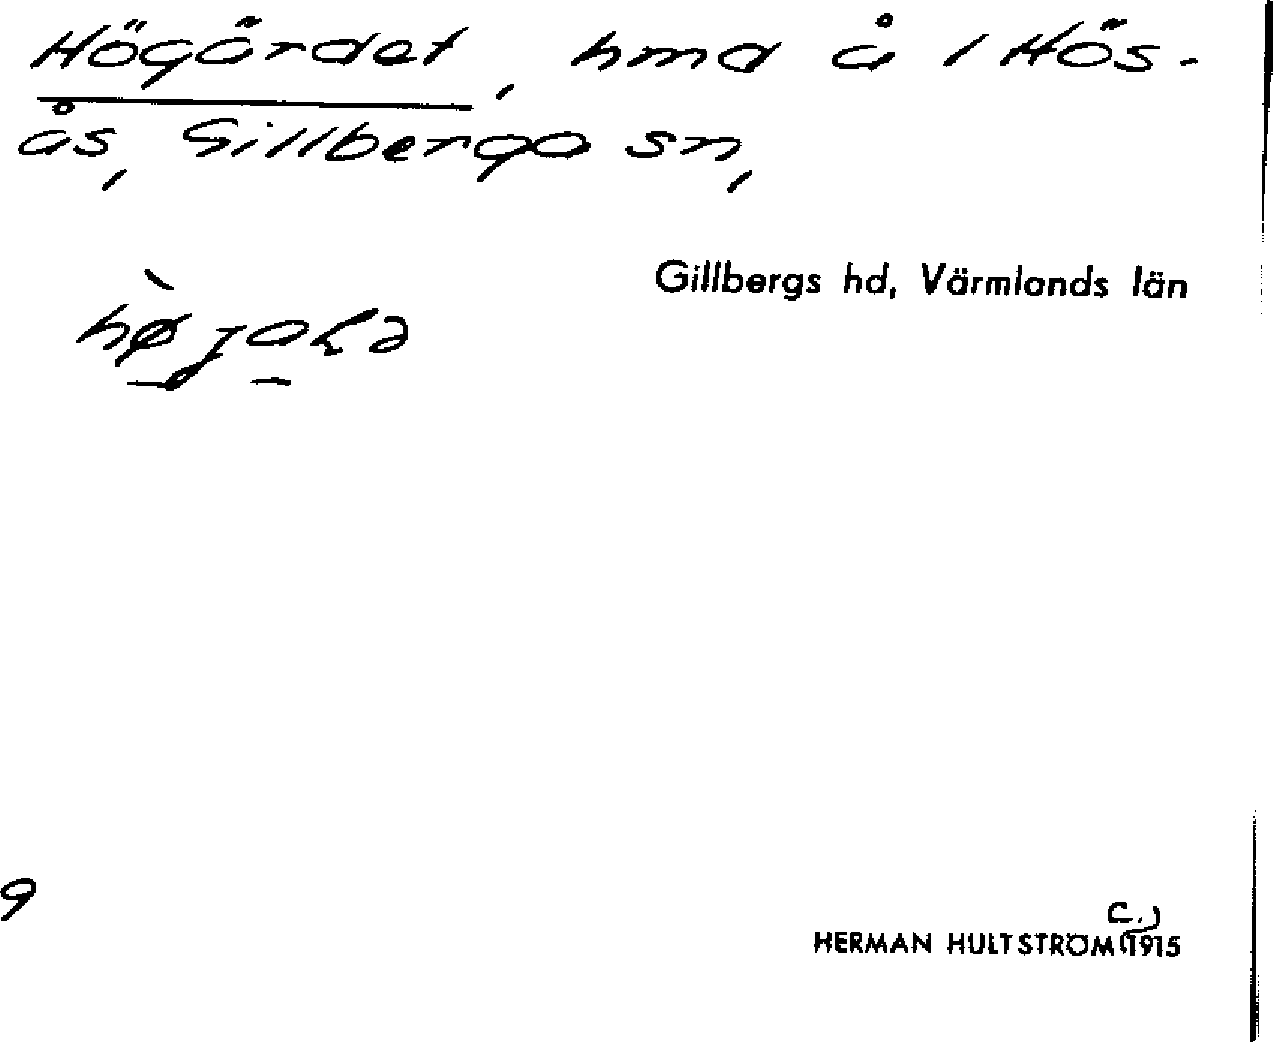 Högärdet, hmd å 1 Hös-
ås, Gillberga sn,
Gillbergs hd, Värmlands län
9
HERMAN HULTSTRÖM (c.) 1915